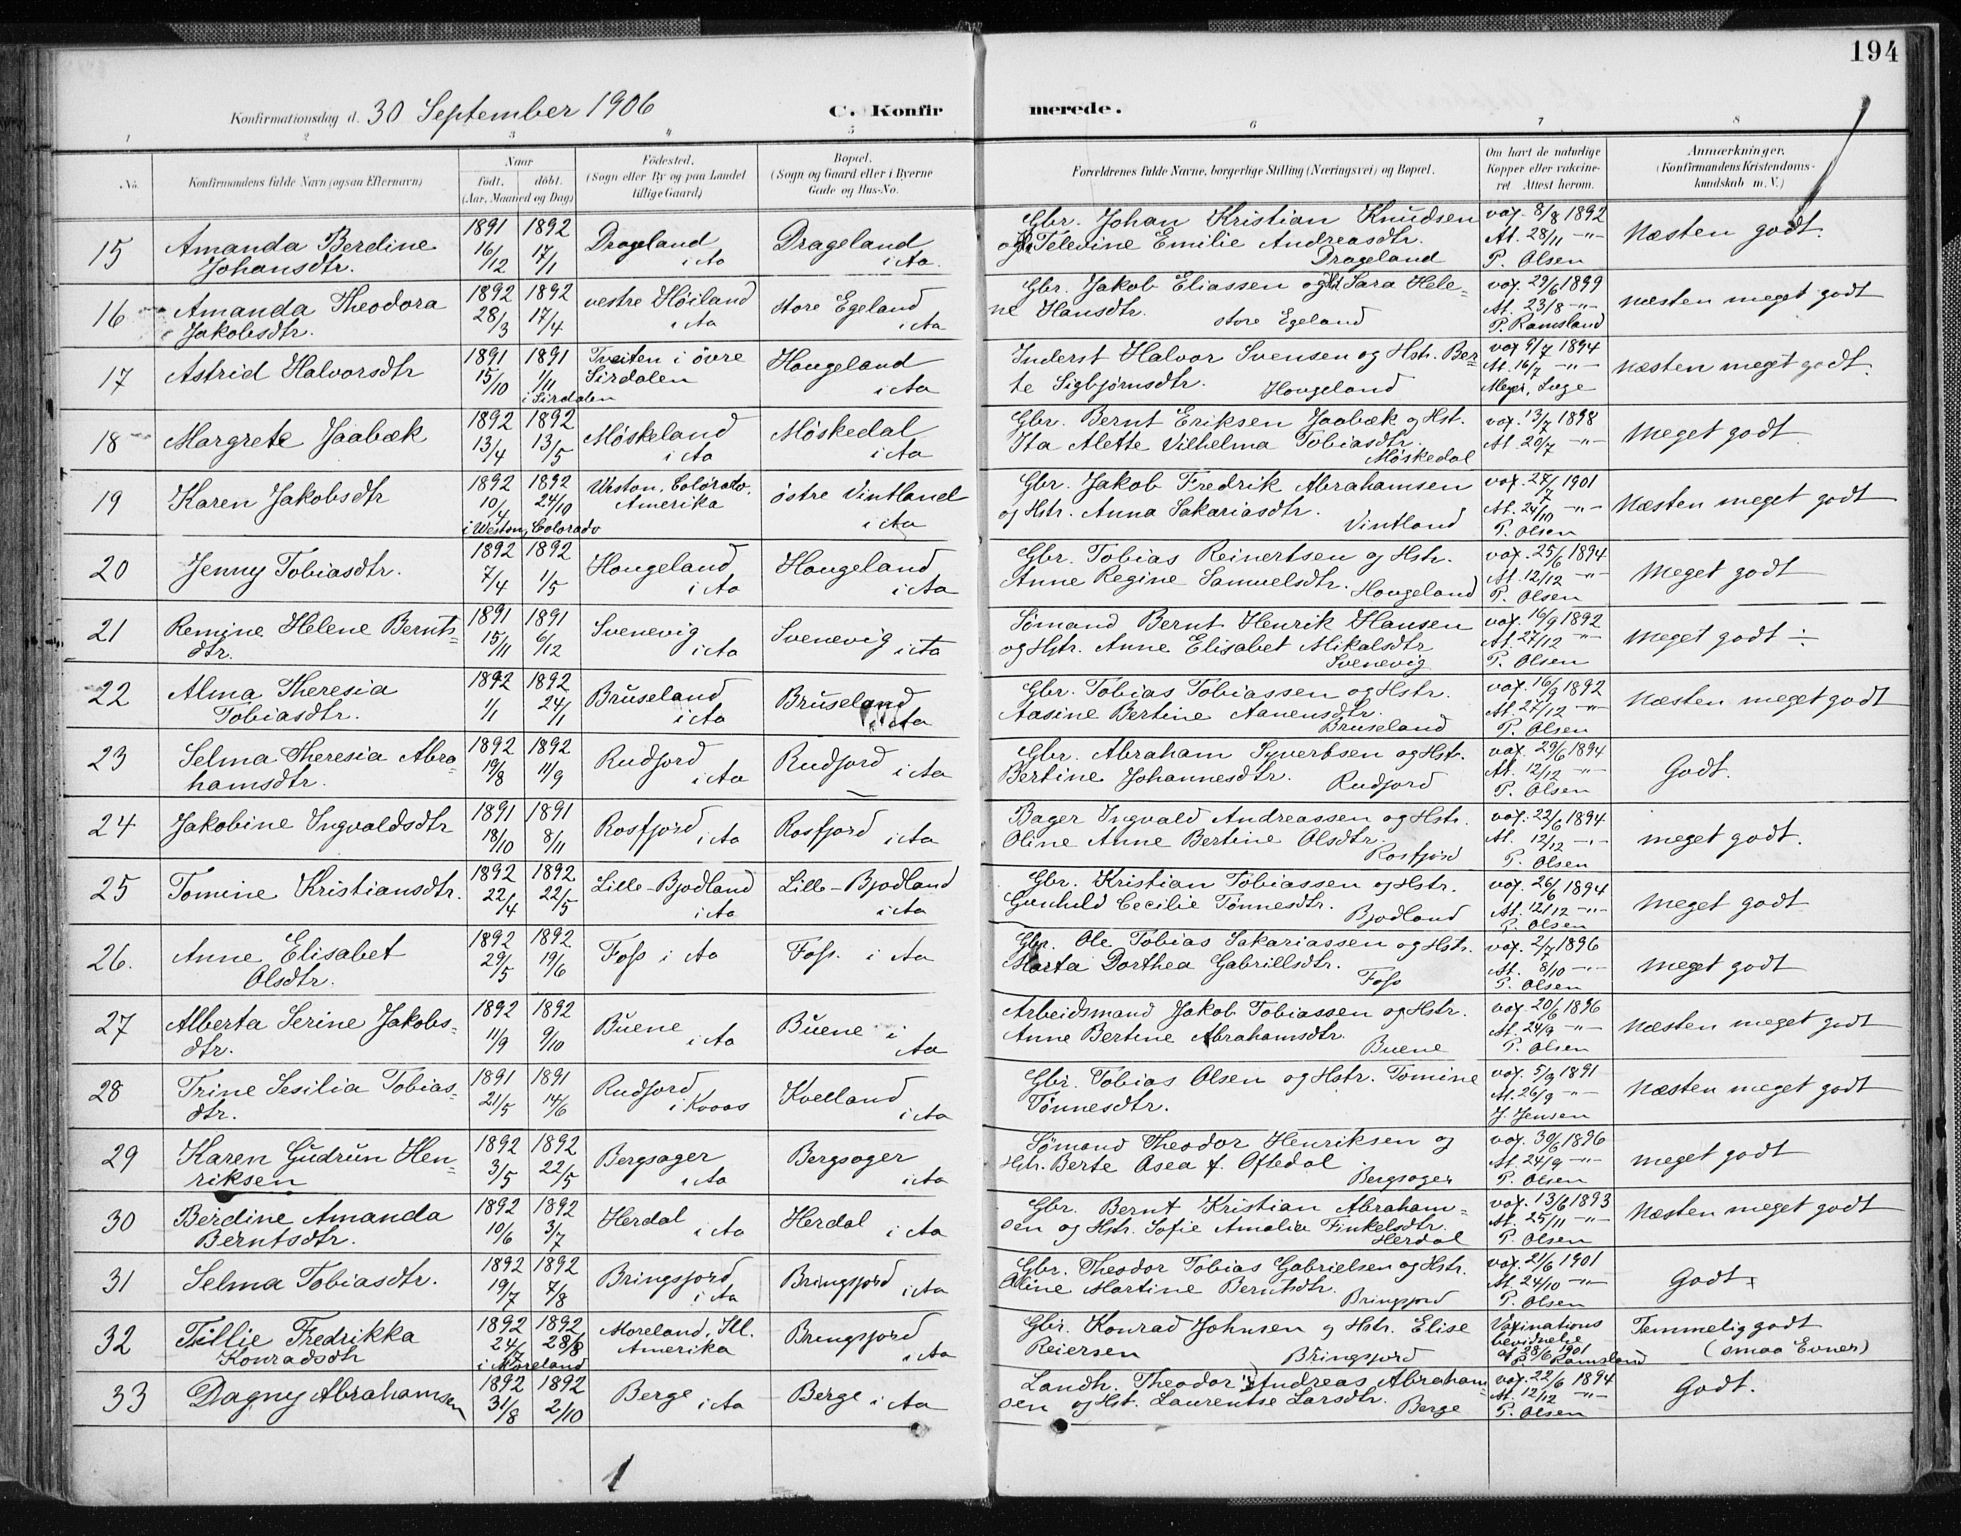 194
Konfirmationsdag d. 30 September 1906 C. Konfirmerede.
1 2 3 4 5 6 7 8
No. Konfirmandens fulde Navn (ogsaa Efternavn) Naar født. døbt. (Aar, Maaned og Dag) Fødested. (Sogn eller By og paa Landet tillige Gaard) Bopæl. (Sogn og Gaard eller i Byerne Gade og Hus-No. Forældrenes fulde Navne, borgerlige Stilling (Næringsvei) og Bopæl. Om havt de naturlige Kopper eller vakcineret. Attest herom. Anmærkninger. (Konfirmandens Kristendomskundskab m. V.)
15 Amanda Berdine 1891 1892 Drageland Drageland Gbr. Johan Kristian Knudsen vax. 8/8 1892 Næsten godt.
Johansdtr. 16/12 17/1 i Aa i Aa. og H. Televine Emilie Andreasdtr. At. 28/11 -"-
Drageland P. Olsen
16 Amanda Theodora 1892 1892 vestre Høiland store Egeland Gbr. Jakob Eliassen og H. Sara Hele- vax. 29/6 1899 næsten meget godt
Jakobsdtr. 28/3 17/4 i Aa i Aa ne Hansdtr. store Egeland At. 23/8 -"-
P. Ramsland
17 Astrid Halvorsdtr 1891 1891 Tveiten i övre Hougeland Inderst Halvor Svensen og Hstr. Ber- vax 9/7 1894 næsten meget godt.
15/10 1/11 Sirdalen i Aa te Sigbjørnsdtr. Hougeland At. 16/7 -"-
i Sirdalen Meyer, Læge
18 Margrete Jaabæk 1892 1892 Møskeland Møskedal Gbr. Bernt Eriksen Jaabæk og Hst. vax. 13/7 1898 Meget godt
13/4 13/5 i Aa i Aa Ita Alette Vilhelma Tobiasdtr. At 20/7 -"-
Møskedal
19 Karen Jakobsdtr 1892 1892 Weston, Colorado, östre Vintland Gbr. Jakob Fredrik Abrahamsen vax. 27/7 1901 Næsten meget godt
10/4 24/10 Amerika i Aa og Hstr. Anna Sakariasdtr. At. 24/10 -"-
i Weston, Colorado Vintland P. Olsen
20 Jenny Tobiasdtr. 1892 1892 Hougeland Hougeland Gbr. Tobias Reinertsen og Hstr. vax. 25/6 1894 Meget godt
7/4 1/5 i Aa i Aa Anne Regine Samuelsdtr. Hougeland At. 12/12 -"-
P. Olsen
21 Remine Helene Bernts- 1891 1891 Svenevig Svenevig Sømand Bernt Henrik Hansen vax. 16/9 1892 Meget godt ÷
dtr. 15/11 6/12 i Aa i Aa og Hstr. Anne Elisabet Mikalsdtr At 27/12 -"-
Svenevig P. Olsen
22 Alma Theresia 1892 1892 Bruseland Bruseland Gbr. Tobias Tobiassen og Hstr. vax. 16/9 1892 Næsten meget godt
Tobiasdtr. 1/1 24/1 i Aa i Aa Aasine Bertine Aanensdtr. At 27/12 -"-
Bruseland P. Olsen
23 Selma Theresia Abra- 1892 1892 Rudjord Rudjord Gbr. Abraham Syvertsen og Hst. vax 29/6 1894 Godt.
hamsdtr. 19/8 11/9 i Aa i Aa Bertine Johannesdtr. Rudjord At. 12/12 -"-
P. Olsen
24 Jakobine Ingvaldsdtr 1891 1891 Rosfjord Rosfjord Bager Ingvald Andreassen og Hstr. vax. 22/6 1894 meget godt.
18/10 8/11 i Aa i Aa Oline Anne Bertine Olsdtr. At. 12/12 -"-
Rosfjord P. Olsen
25 Tomine Kristiansdtr. 1892 1892 Lille-Bjodland Lille-Bjodland Gbr. Kristian Tobiassen og Hstr. vax. 26/6 1894 Meget godt
22/4 22/5 i Aa i Aa Gunhild Cecilie Tønnesdtr. At. 12/12 -"-
Bjodland P. Olsen
26. Anne Elisabet 1892 1892 Foss i Aa Foss. i Aa Gbr. Ole Tobias Sakariassen og Hstr. vax. 2/7 1896 meget godt
Olsdtr. 29/5 19/6 Marta Dorthea Gabrillsdtr. At. 8/10 -"-
Foss P. Olsen
27 Alberta Serine Jakobs- 1892 1892 Buene Buene i Arbeidsmand Jakob Tobiassen og Hstr. vax. 20/6 1896 Næsten meget godt
dtr. 11/9 9/10 i Aa Aa Anne Bertine Abrahamsdtr. At. 24/9 -"-
Buene P. Olsen
28 Trine Sesilia Tobias- 1891 1891 Rudjord Kvelland Gbr. Tobias Olsen og Hstr. Tomine vax. 5/9 1891 Næsten meget godt
dtr. 21/5 14/6 i Kvaas i Aa Tønnesdtr. At. 26/9 -"-
J. Jensen
29 Karen Gudrun Hen- 1892 1892 Bergsager Bergsager Sømand Theodor Henriksen og vax. 30/6 1896 meget godt
riksen 3/5 22/5 i Aa i Aa Hstr. Berte Asea f. Oftedal At. 24/9 -"-
Bergsager P. Olsen
30 Berdine Amanda 1892 1892 Herdal Herdal Gbr. Bernt Kristian Abraham- vax. 13/6 1893 Næsten meget godt
Berntsdtr. 10/6 3/7 i Aa i Aa sen og Hstr. Sofie Amalia Finkelsdtr. At. 25/11 -"-
Herdal P. Olsen
31 Selma Tobiasdtr. 1892 1892 Bringsjord Bringsjord Gbr. Theodor Tobias Gabrielsen og Hstr. vax. 21/6 1901 Godt
19/7 7/8 i Aa i Aa Oline Martine Berntsdtr. At. 24/10 -"-
Bringsjord P. Olsen
32 Tillie Fredrikka 1892 1892 Moreland, Ill. Bringsjord Gbr. Konrad Johnsen og Hstr. Elise Vaxinations Temmelig godt
Konradsdtr 24/7 28/8 Amerika i Aa Reiersen Bringsjord bevidnelse (smaa Evner)
i Moreland af 28/6 1901 P. Ramsland
33 Dagny Abrahamsen 1892 1892 Berge Berge Landh. Theodor Andreas Abraham- vax. 22/6 1894 Godt.
31/8 2/10 i Aa i Aa sen og Hst. Laurentse Larsdtr. Berge At. 12/12 -"-
P. Olsen